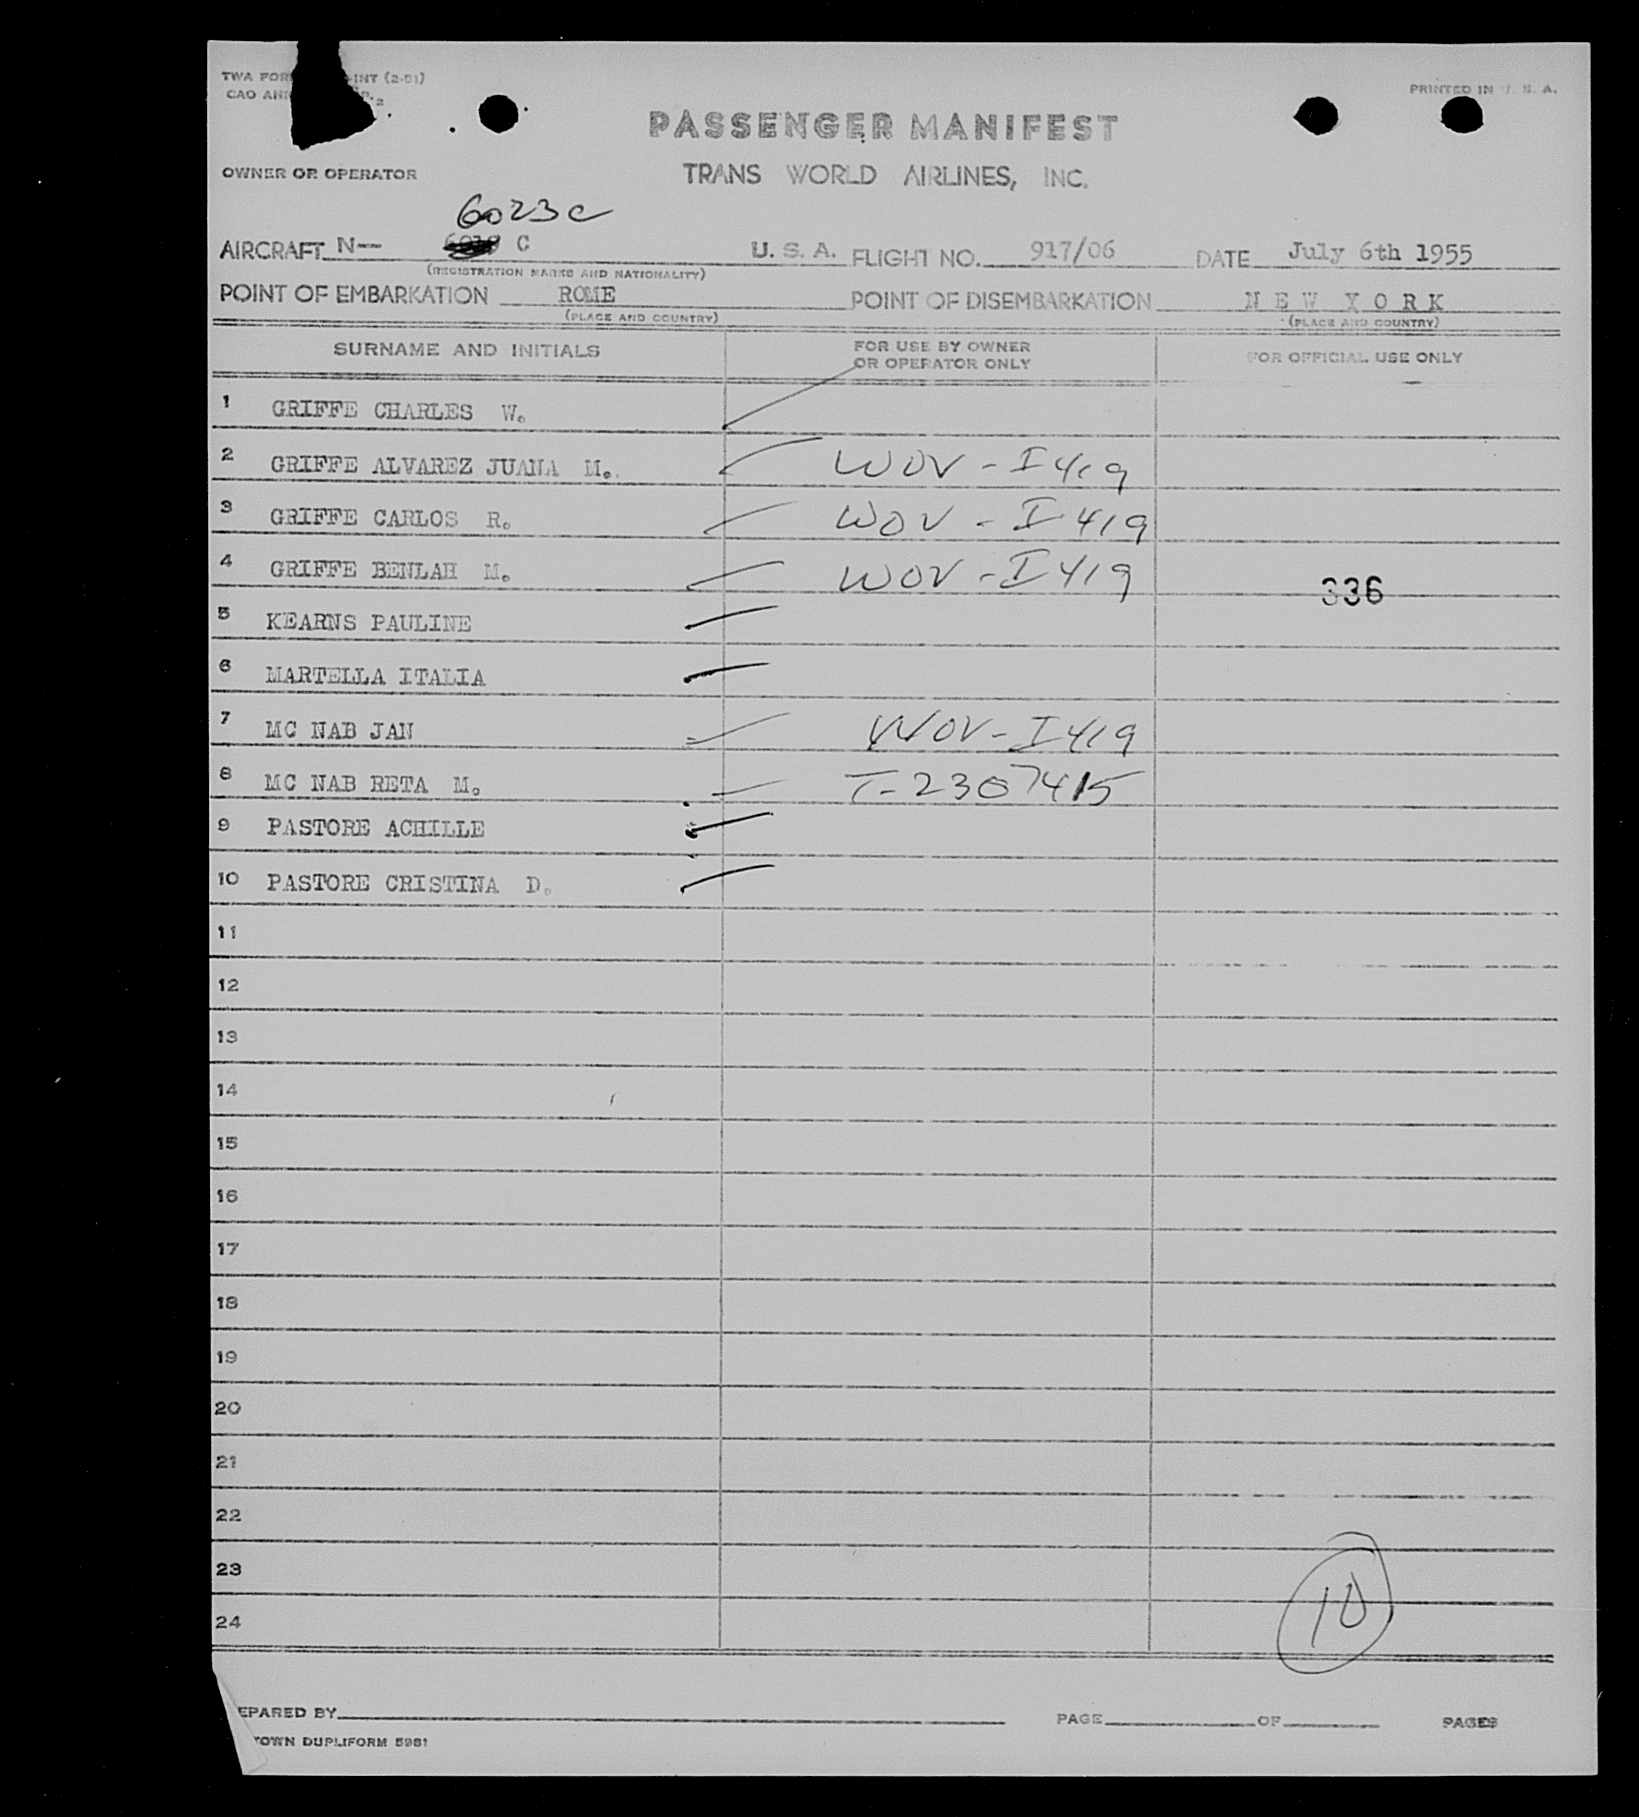 TWA FOR -INT (2-51) PRINTED IN U. S. A.
CAO
PASSENGER MANIFEST
OWNER OR OPERATOR TRANS WORLD AIRLINES, INC.
6023c
AIRCRAFT N-- C U. S. A. FLIGHT NO. 917/06 DATE July 6th 1955
(REGISTRATION MARKS AND NATIONALITY)
POINT OF EMBARKATION ROME POINT OF DISEMBARKATION N E W Y O R K
(PLACE AND COUNTRY) (PLACE AND COUNTRY)
SURNAME AND INITIALS FOR USE BY OWNER OR OPERATOR ONLY FOR OFFICIAL USE ONLY
1 GRIFFE CHARLES W.
2 GRIFFE ALVAREZ JUANA M. WOV - I 419
3 GRIFFE CARLOS R. WOV - I 419
4 GRIFFE BENLAH M. WOV - I 419
336
5 KEARNS PAULINE
6 MARTELLA ITALIA
7 MC NAB JAN WOV - I 419
8 MC NAB RETA M. T-2307415
9 PASTORE ACHILLE
10 PASTORE CRISTINA D.
11
12
13
14
15
16
17
18
19
20
21
22
23
24
10
EPARED BY PAGE OF PAGES
TOWN DUPLIFORM 5981